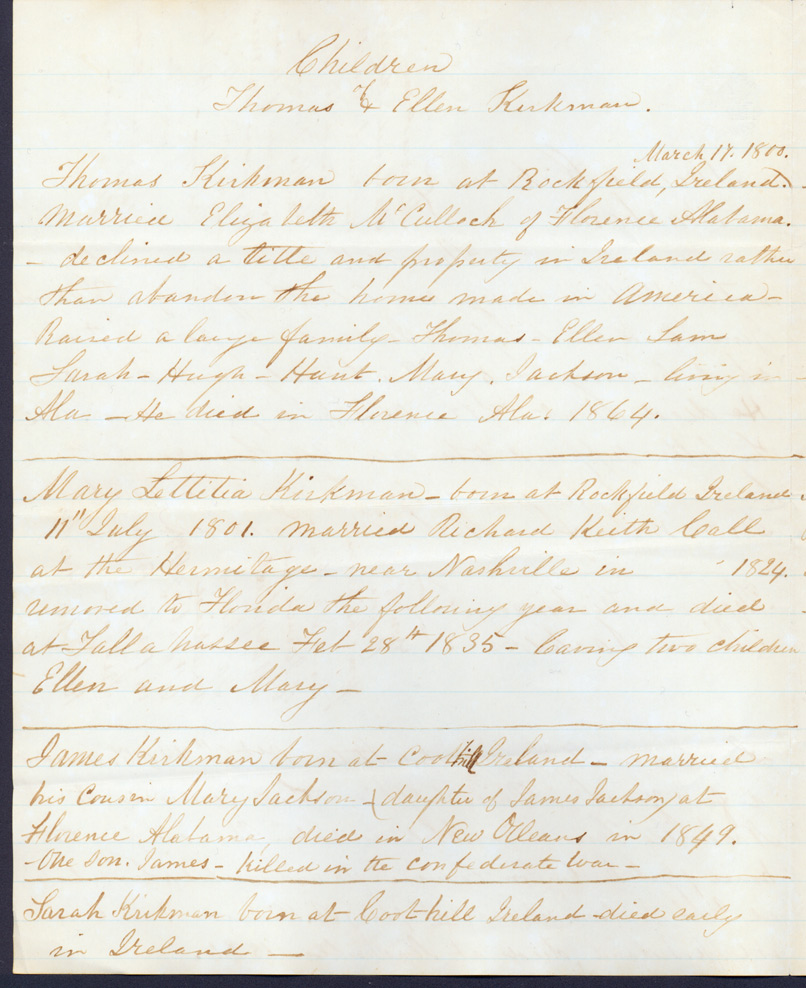 Children
of
Thomas & Ellen Kirkman.
March 17. 1800.
Thomas Kirkman born at Rockfield, Ireland.
Married Elizabeth McCulloch of Florence Alabama.
- declined a title and property in Ireland rather
than abandon the home made in America -
Raised a large family - Thomas - Ellen Sam
Sarah - Hugh - Hunt. Mary. Jackson - living in
Ala - He died in Florence Ala. 1864.
Mary Lettitia Kirkman - born at Rockfield Ireland
11th July 1801. married Richard Keith Call
at the Hermitage - near Nashville in 1824.
removed to Florida the following year and died
at Tallahassee Feb 28th 1835 - leaving two children
Ellen and Mary -
James Kirkman born at Coothill Ireland - married
his Cousin Mary Jackson - (daughter of James Jackson) at
Florence Alabama, died in New Orleans in 1849.
- One son. James - killed in the confederate war -
Sarah Kirkman born at Coothill Ireland - died early
in Ireland -